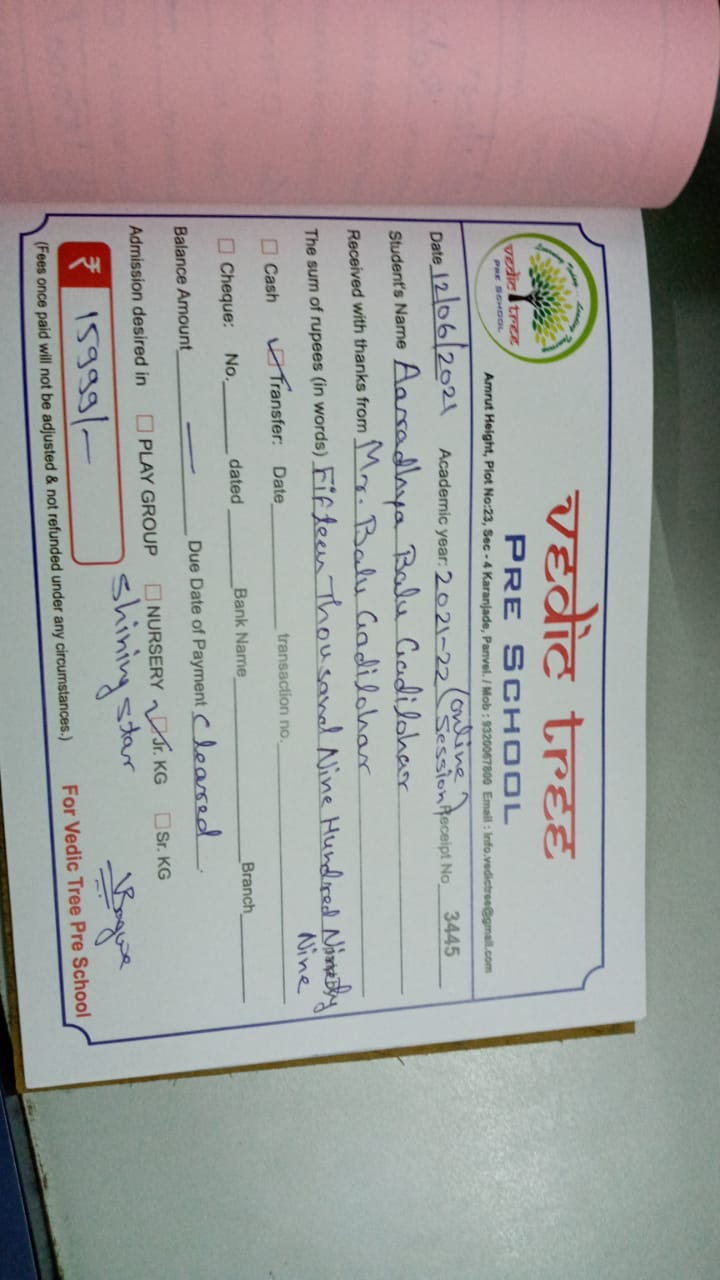 vedic tree
PRE SCHOOL
vedic tree
PRE SCHOOL
Amrut Height, Plot No:23, Sec - 4 Karanjade, Panvel. / Mob : 9320067800 Email : info.vedictree@gmail.com
Date 12/06/2021 Academic year: 2021-22 (Online Session) Receipt No 3445
Student's Name Aaradhya Balu Gadilohar
Received with thanks from Mr. Balu Gadilohar
The sum of rupees (in words) Fifteen Thousand Nine Hundred Ninety Nine
Cash Transfer: Date transaction no.
Cheque: No. dated Bank Name Branch
Balance Amount — Due Date of Payment Cleared.
Admission desired in PLAY GROUP NURSERY Jr. KG Sr. KG
₹ 15999/- Shining Star
(Fees once paid will not be adjusted & not refunded under any circumstances.) For Vedic Tree Pre School